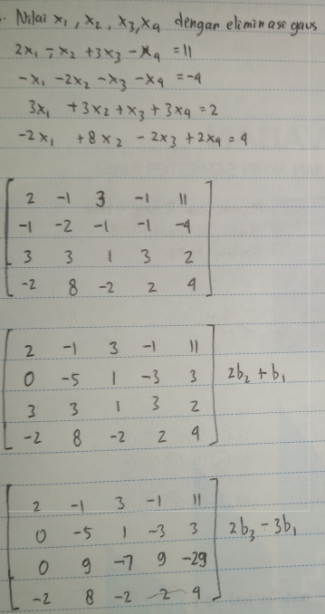 . Nilai x₁, x₂, x₃, x₄ dengan eliminasi gaus
2x₁ - x₂ + 3x₃ - x₄ = 11
-x₁ - 2x₂ - x₃ - x₄ = -4
3x₁ + 3x₂ + x₃ + 3x₄ = 2
-2x₁ + 8x₂ - 2x₃ + 2x₄ = 4
2 -1 3 -1 11
-1 -2 -1 -1 -4
3 3 1 3 2
-2 8 -2 2 4
2 -1 3 -1 11
0 -5 1 -3 3 2b₂ + b₁
3 3 1 3 2
-2 8 -2 2 4
2 -1 3 -1 11
0 -5 1 -3 3 2b₃ - 3b₁
0 9 -7 9 -29
-2 8 -2 2 4